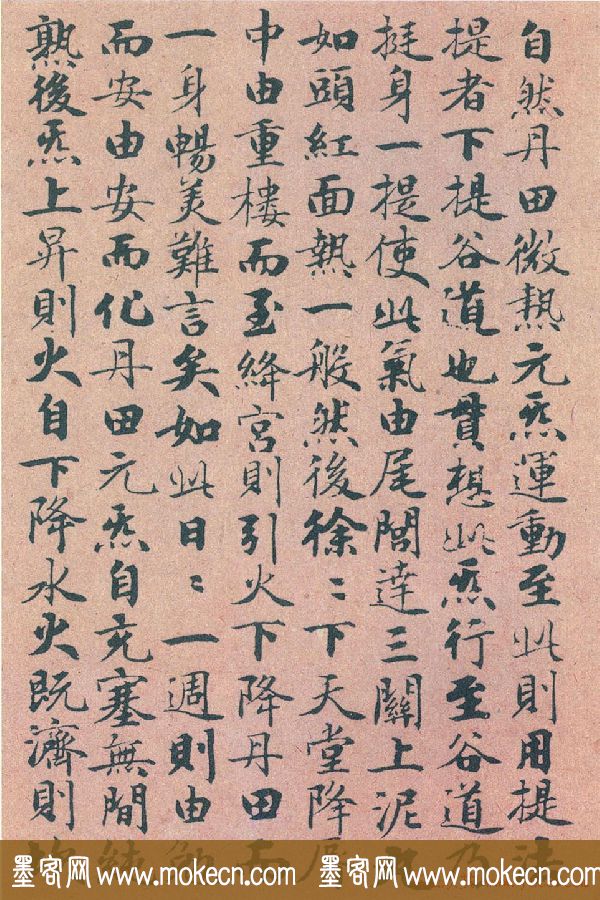 自然丹田微熱元炁運動至此則用提
提者下提谷道也貫想此炁行至谷道乃
挺身一提使此氣由尾閭達三關上泥丸
如頭紅面熱一般然後徐〻下天堂降
中由重樓而至絳宮則引火下降丹田而
一身暢美難言矣如此日〻一週則由
而安由安而化丹田元炁自充塞無間
熟後炁上昇則火自下降水火既濟則
墨客网 www.mokecn.com 墨客网 www.mokecn.com